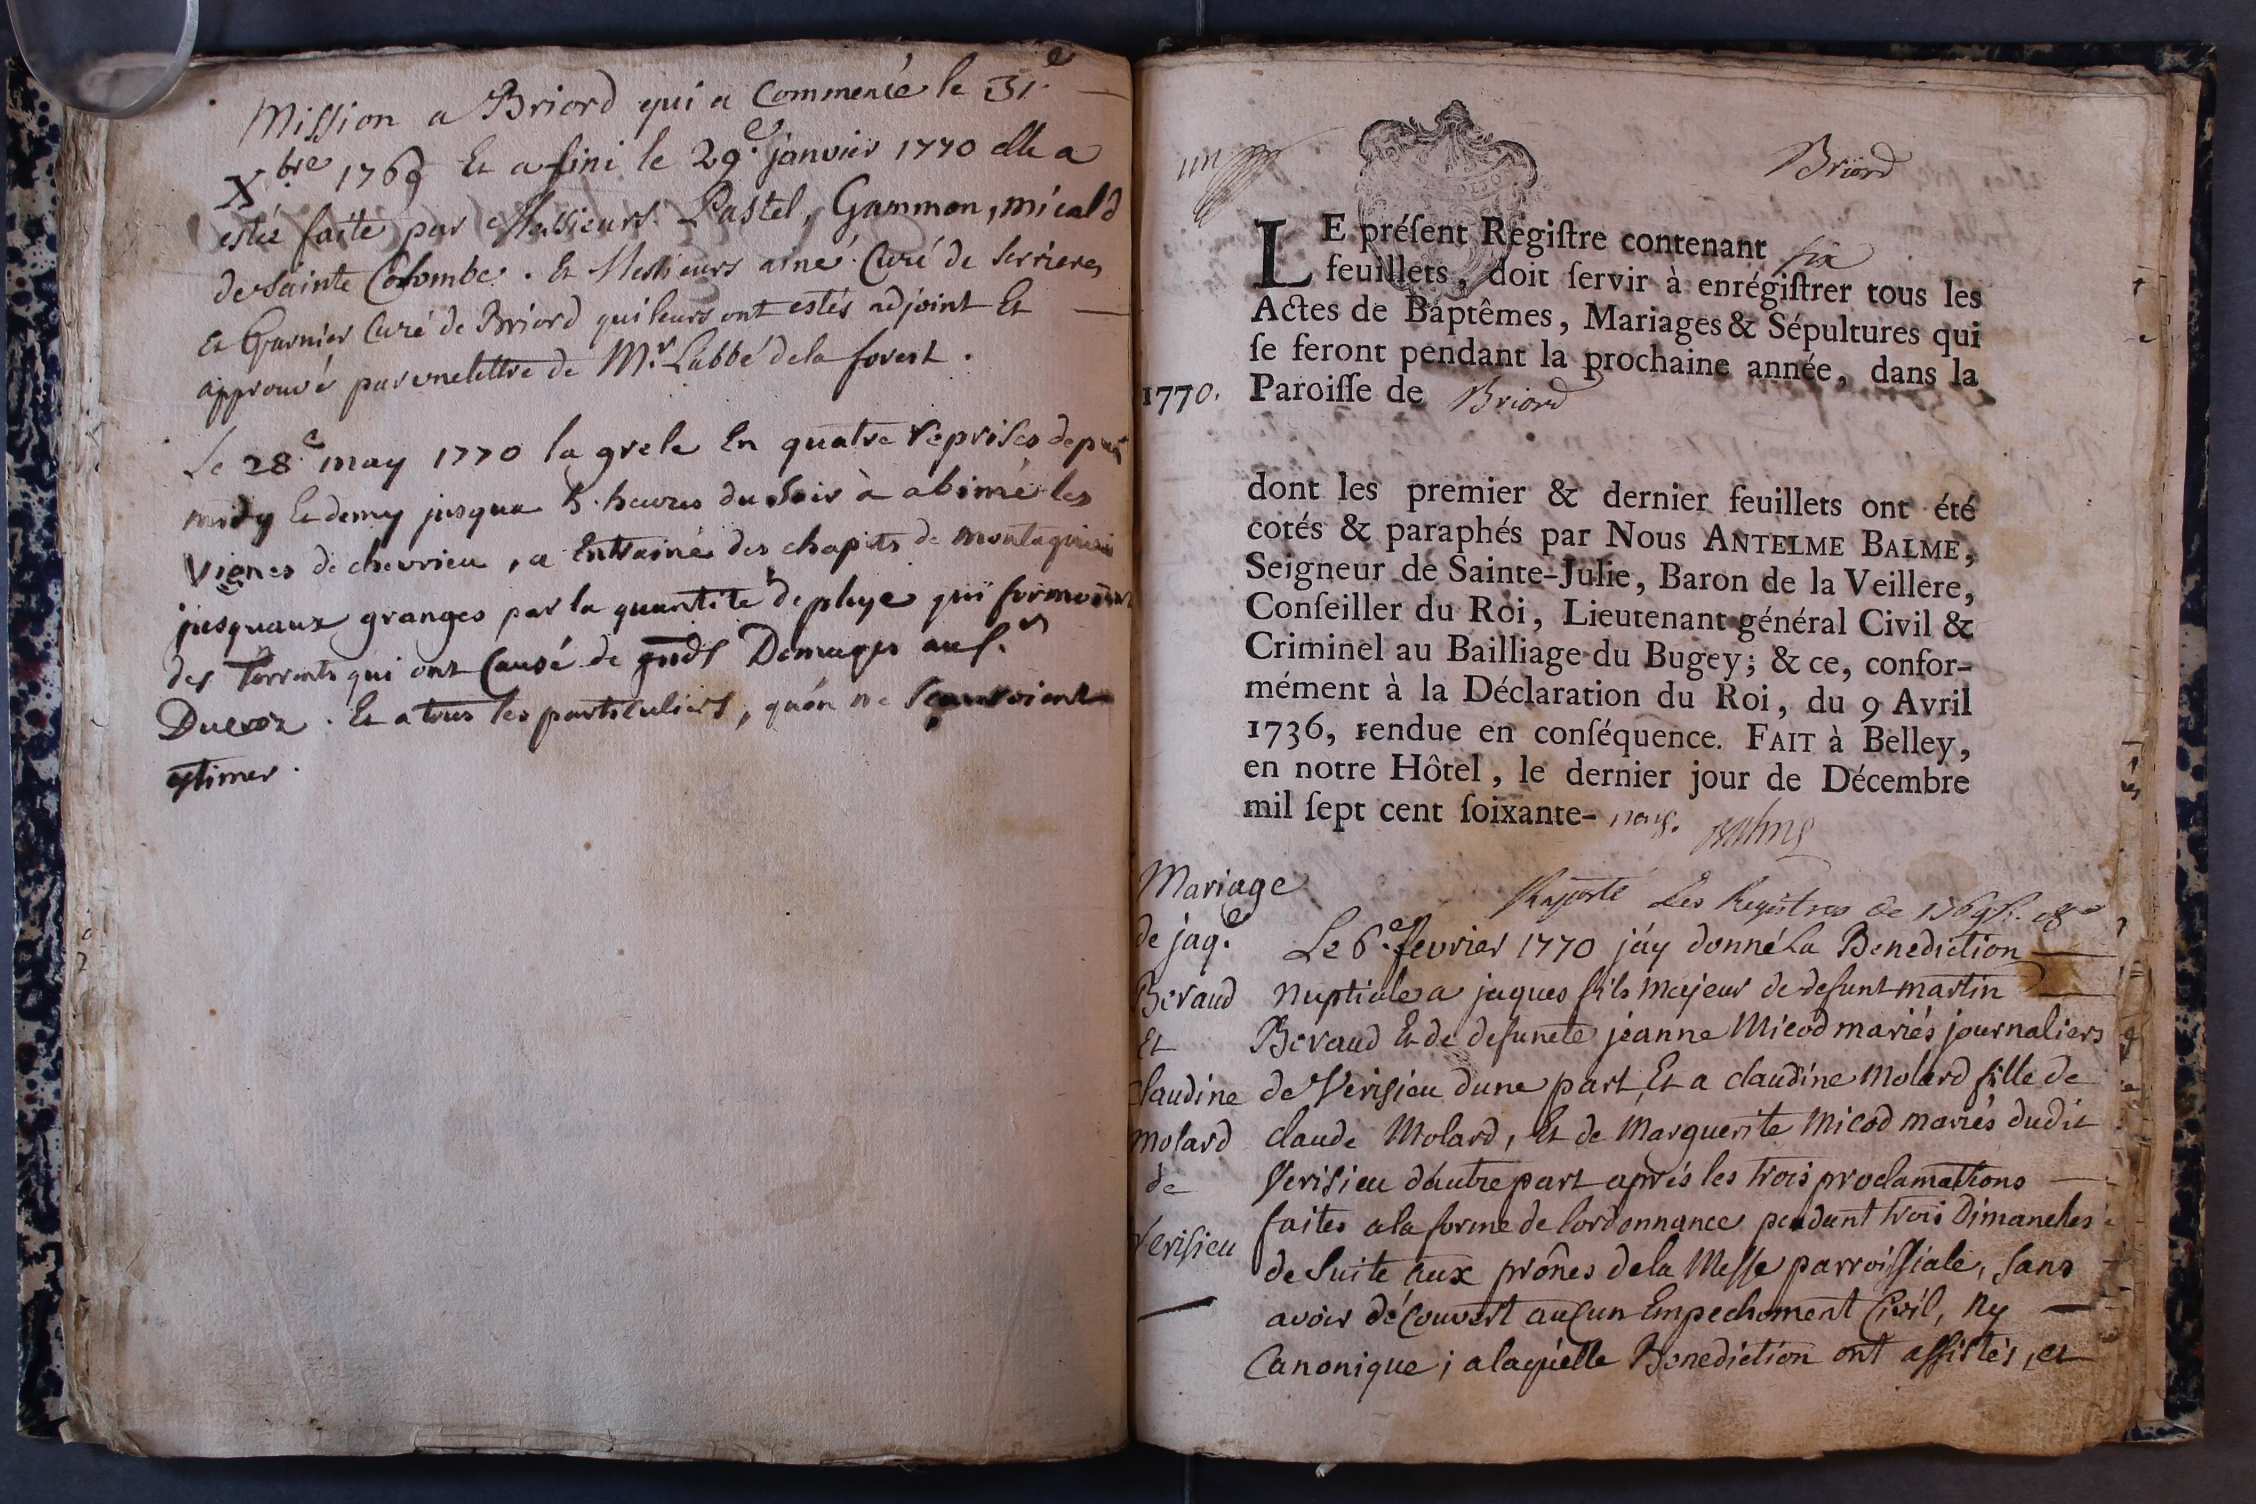 Mission a Briord qui a Commencée le 31e.
Xbre 1769 Et a fini le 29e. janvier 1770 elle a
estée faite par Messieurs Pastel, Gammon, micald
de sainte Colombe. Et Messieurs aîné Curé de serrieres
et Garnier Curé de Briord qui leurs ont estés adjoint Et
approuvés par une lettre de Mr. Labbé de la forest.
Le 28e may 1770 la grele En quatre reprises depuis
midy Et demy jusqua 5. heures du Soir à abimé les
vignes de chevrieu, a Entrainé des chapits de
jusquaux granges par la quantité de pluye qui
des Torrents qui ont Causé de gnds Domages
Et a tous les particuliers, quón ne Scauroient
estimer.
un
Briord
LE préſent Regiſtre contenant six
feuillets, doit ſervir à enrégiſtrer tous les
Actes de Baptêmes, Mariages & Sépultures qui
ſe feront pendant la prochaine année, dans la
1770. Paroiſſe de Briord
dont les premier & dernier feuillets ont été
cotés & paraphés par Nous ANTELME BALME,
Seigneur de Sainte-Julie, Baron de la Veillere,
Conſeiller du Roi, Lieutenant général Civil &
Criminel au Bailliage du Bugey; & ce, confor-
mément à la Déclaration du Roi, du 9 Avril
1736, rendue en conſéquence. FAIT à Belley,
en notre Hôtel, le dernier jour de Décembre
mil ſept cent ſoixante- neuf. Balme
Raporté Les Registres de 1769
Mariage
de jaqe.
Beraud
Et
Claudine
Molard
de
Verisieu
Le 6e. fevrier 1770 jáy donné La Benediction
Nuptiale a jaques fils majeur de defunt martin
Beraud Et de defuncte jeanne Micod mariés journaliers
de Verisieu dune part, Et a claudine Molard fille de
claude Molard, Et de Marguerite Micod mariés dudit
Verisieu dáutre part aprés les trois proclamations
faites a la forme de lordonnance pendant trois Dimanches
de Suite aux prônes de la Messe parroissiale, Sans
avoir découvert auCun Empechement Civil, Ny
Canonique; a laquelle Benediction ont assistés, et